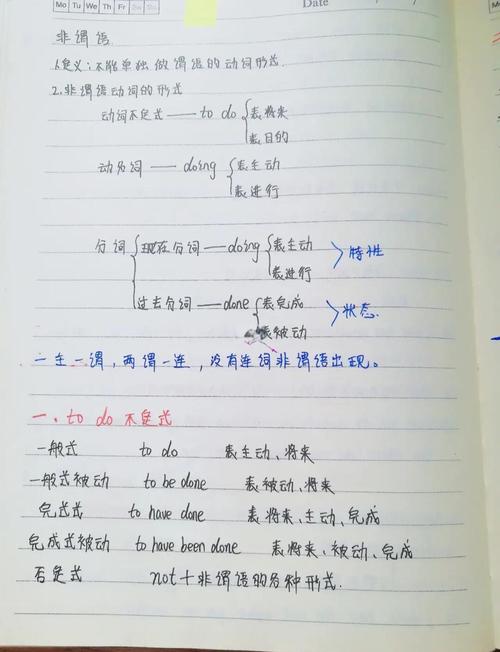 Mo Tu We Th Fr Sa Su
Date
非谓语
1.定义：不能单独做谓语的动词形式.
2.非谓语动词的形式
动词不定式——to do { 表将来
表目的
动名词——doing { 表主动
表进行
分词 { 现在分词——doing { 表主动
表进行 > 特性
过去分词——done { 表完成
表被动 > 状态.
一主一谓，两谓一连，没有连词非谓语出现。
一. to do 不定式
一般式 to do 表主动、将来
一般式被动 to be done 表被动、将来
完式式 to have done 表将来、主动、完成
完成式被动 to have been done 表将来、被动、完成
否定式 not+非谓语的各种形式.